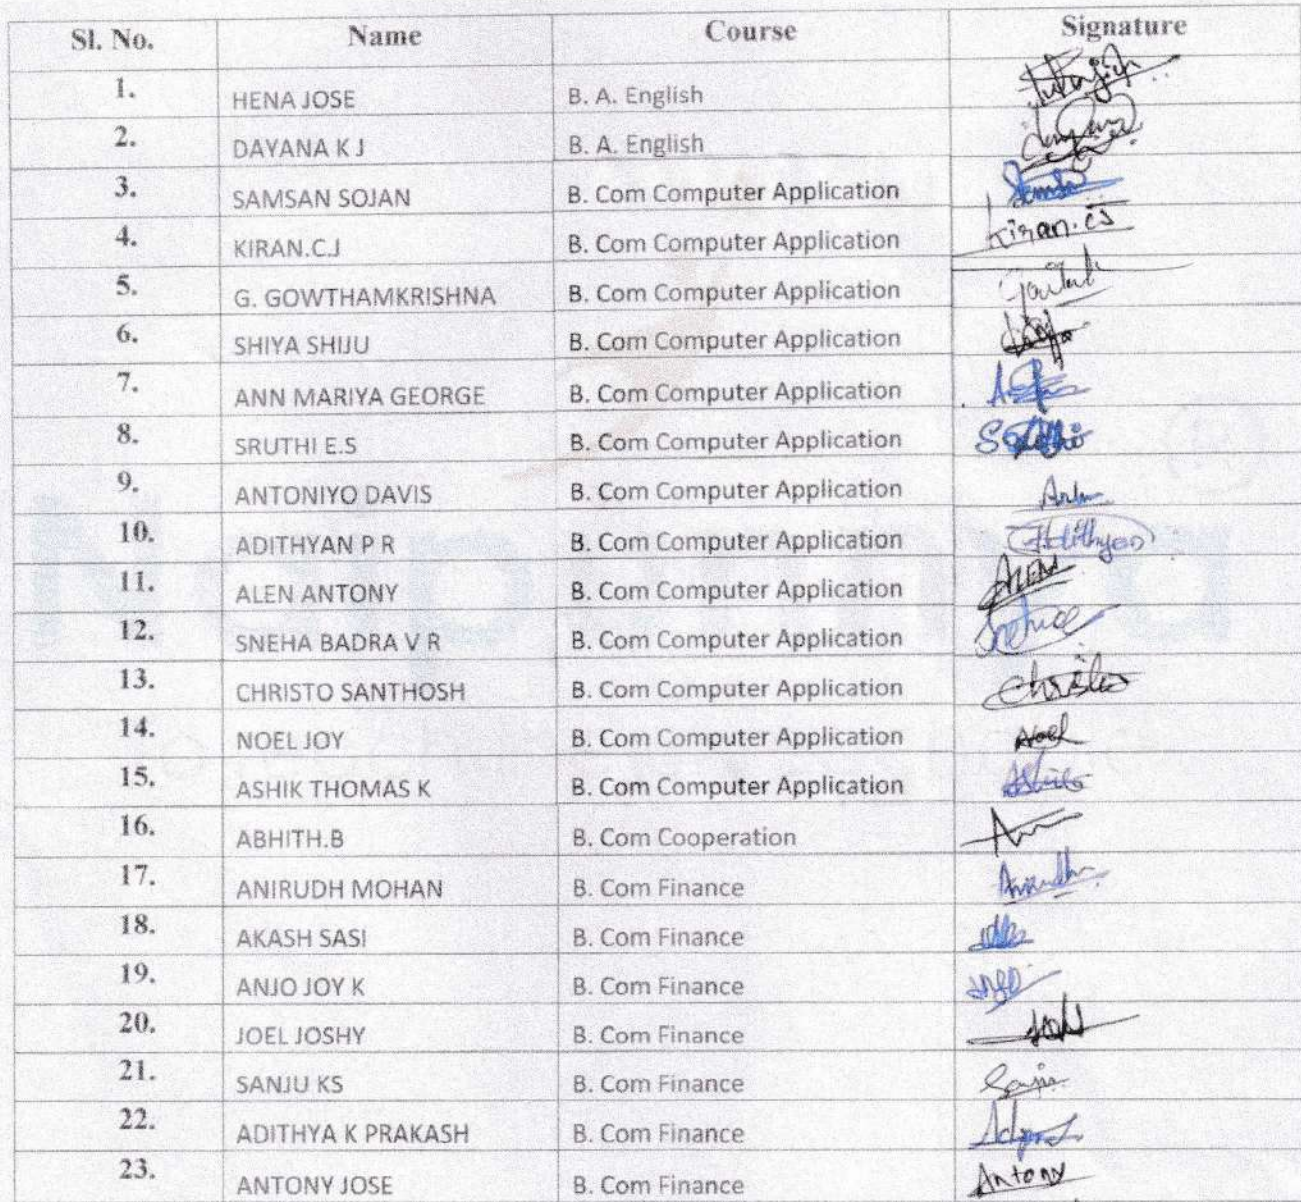 Sl. No. Name Course Signature
1. HENA JOSE B. A. English
2. DAYANA K J B. A. English
3. SAMSAN SOJAN B. Com Computer Application
4. KIRAN.C.J B. Com Computer Application Kiran.cJ
5. G. GOWTHAMKRISHNA B. Com Computer Application
6. SHIYA SHIJU B. Com Computer Application
7. ANN MARIYA GEORGE B. Com Computer Application
8. SRUTHI E.S B. Com Computer Application
9. ANTONIYO DAVIS B. Com Computer Application
10. ADITHYAN P R B. Com Computer Application
11. ALEN ANTONY B. Com Computer Application ALEN
12. SNEHA BADRA V R B. Com Computer Application
13. CHRISTO SANTHOSH B. Com Computer Application Christo
14. NOEL JOY B. Com Computer Application Noel
15. ASHIK THOMAS K B. Com Computer Application
16. ABHITH.B B. Com Cooperation
17. ANIRUDH MOHAN B. Com Finance
18. AKASH SASI B. Com Finance
19. ANJO JOY K B. Com Finance
20. JOEL JOSHY B. Com Finance
21. SANJU KS B. Com Finance
22. ADITHYA K PRAKASH B. Com Finance
23. ANTONY JOSE B. Com Finance Antony